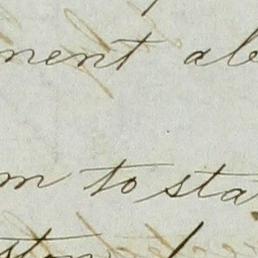 nent ab
m to sta
ston